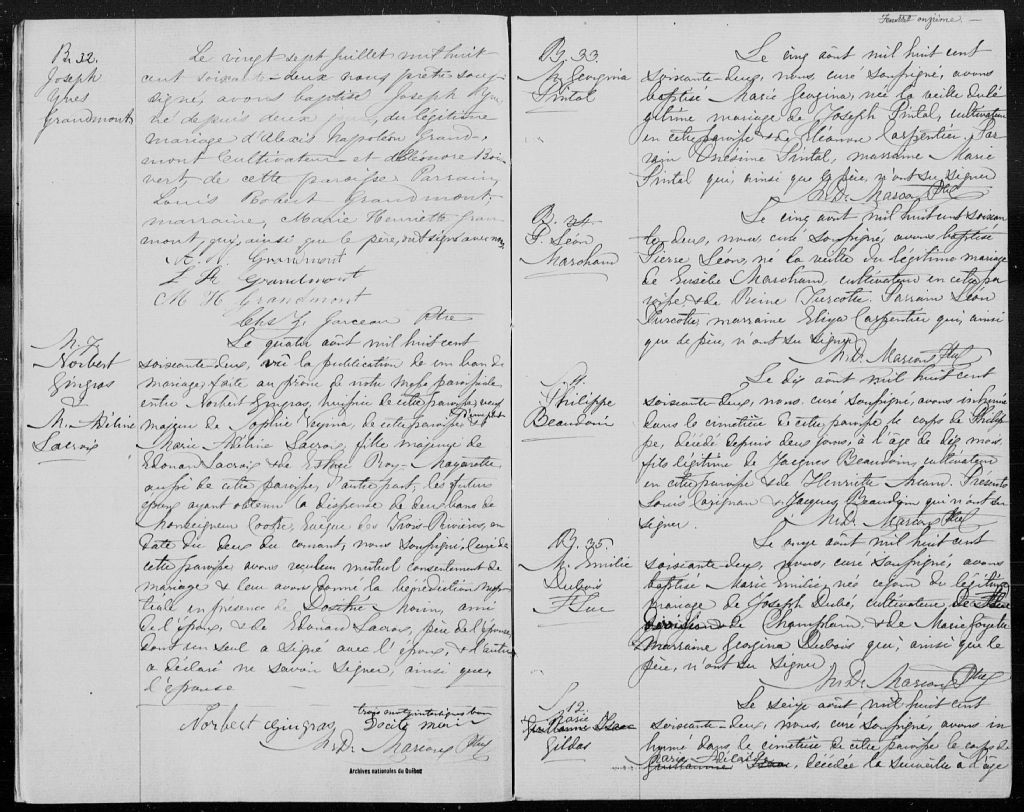 B. 32.
Joseph
Yves
Grandmont
Le vingt sept Juillet mil huit
cent soixante-deux nous prêtre sous-
signé, avons baptisé Joseph Yve
né depuis deux jours, du légitime
mariage d'Alexis Napoléon Grand-
mont Cultivateur et d'Eléonore Boi-
vert, de cette paroisse Parrain,
Louis Robert Grandmont,
marraine, Marie Henriette Gran
mont, qui, ainsi que le père, ont signé avec nous
A. N. Grandmont
L R Grandmont
M H Grandmont
Chs Z. Garceau Ptre
M. 7
Norbert
Gingras
&
M. Adéline
Lacroix
Le quatre août mil huit cent
soixante-deux, vû la publication de un ban de
mariage faite au prône de notre messe paroissiale
entre Norbert Gingras, de cette paroisse, veuf
majeur de Sophie Vezina, de cette paroisse d'une part &
Marie Adéline Lacroix, fille majeure de
Edouard Lacroix & de Esther Roy-Mayrotte
aussi de cette paroisse, d'autre part; les futurs
époux ayant obtenu la dispense de deux bans de
Monseigneur Cooke, Evêque des Trois-Rivières, en
date du deux du courant, nous soussigné, Curé de
cette paroisse avons reçu leur mutuel consentement de
mariage & leur avons donné la bénédiction nup-
tiale en présence de Dosithé Morin, ami
de l'époux, & de Edouard Lacroix, père de l'épouse,
dont un seul a signé avec l'époux, & l'autre
a déclaré ne savoir signer, ainsi que
l'épouse
trois mots interlignés bons
Norbert Gingras Docité morin
N. D. Marcoux Ptre
Archives nationales du Québec
Feuillet onzième.
B. 33.
M. Georgina
Pintal
Le cinq août mil huit cent
soixante-deux, nous, curé soussigné, avons
baptisé Marie Georgina, née la veille du lé-
gitime mariage de Joseph Pintal, cultivateur
en cette paroisse & de Eléonore Carpentier, Par-
rain Onésime Pintal, marraine Marie
Pintal qui, ainsi que le père, n'ont su signer
N. D. Marcoux Ptre
B.
P. Léon
Marchand
Le cinq août mil huit cent soixan-
te-deux, nous, curé soussigné, avons baptisé
Pierre Léon, né la veille du légitime mariage
de Eusèbe Marchand, cultivateur en cette pa
roisse & de Reine Turcotte. Parrain Léon
Turcotte, marraine Eliza Carpentier qui, ainsi
que le père, n'ont su signer
N. D. Marcoux Ptre
S. 11.
Philippe
Beaudoin
Le dix août mil huit cent
soixante-deux, nous, curé soussigné, avons inhumé
dans le cimetière de cette paroisse le corps de Philip-
pe, décédé depuis deux jours, à l'âge de dix mois
fils légitime de Jacques Beaudoin, cultivateur
en cette paroisse & de Henriette Présents
Louis Carignan & Jacques Beaudoin qui n'ont su
signer.
N. D. Marcoux Ptre
B. 35.
M. Emilie
Dubois
St Luc
Le onze août mil huit cent
soixante-deux, nous, curé soussigné, avons
baptisé Marie Emilie, née ce jour du légitime
mariage de Joseph Dubé, cultivateur, de St Luc
de Champlain & de Marie Goyette
marraine Georgina Dubois qui, ainsi que le
père, n'ont su signer
N. D. Marcoux Ptre
S. 12
Marie
Gildas
Le seize août mil huit cent
soixante-deux, nous, curé soussigné, avons in
humé dans le cimetière de cette paroisse le corps de
Marie
décédée la surveille à l'âge